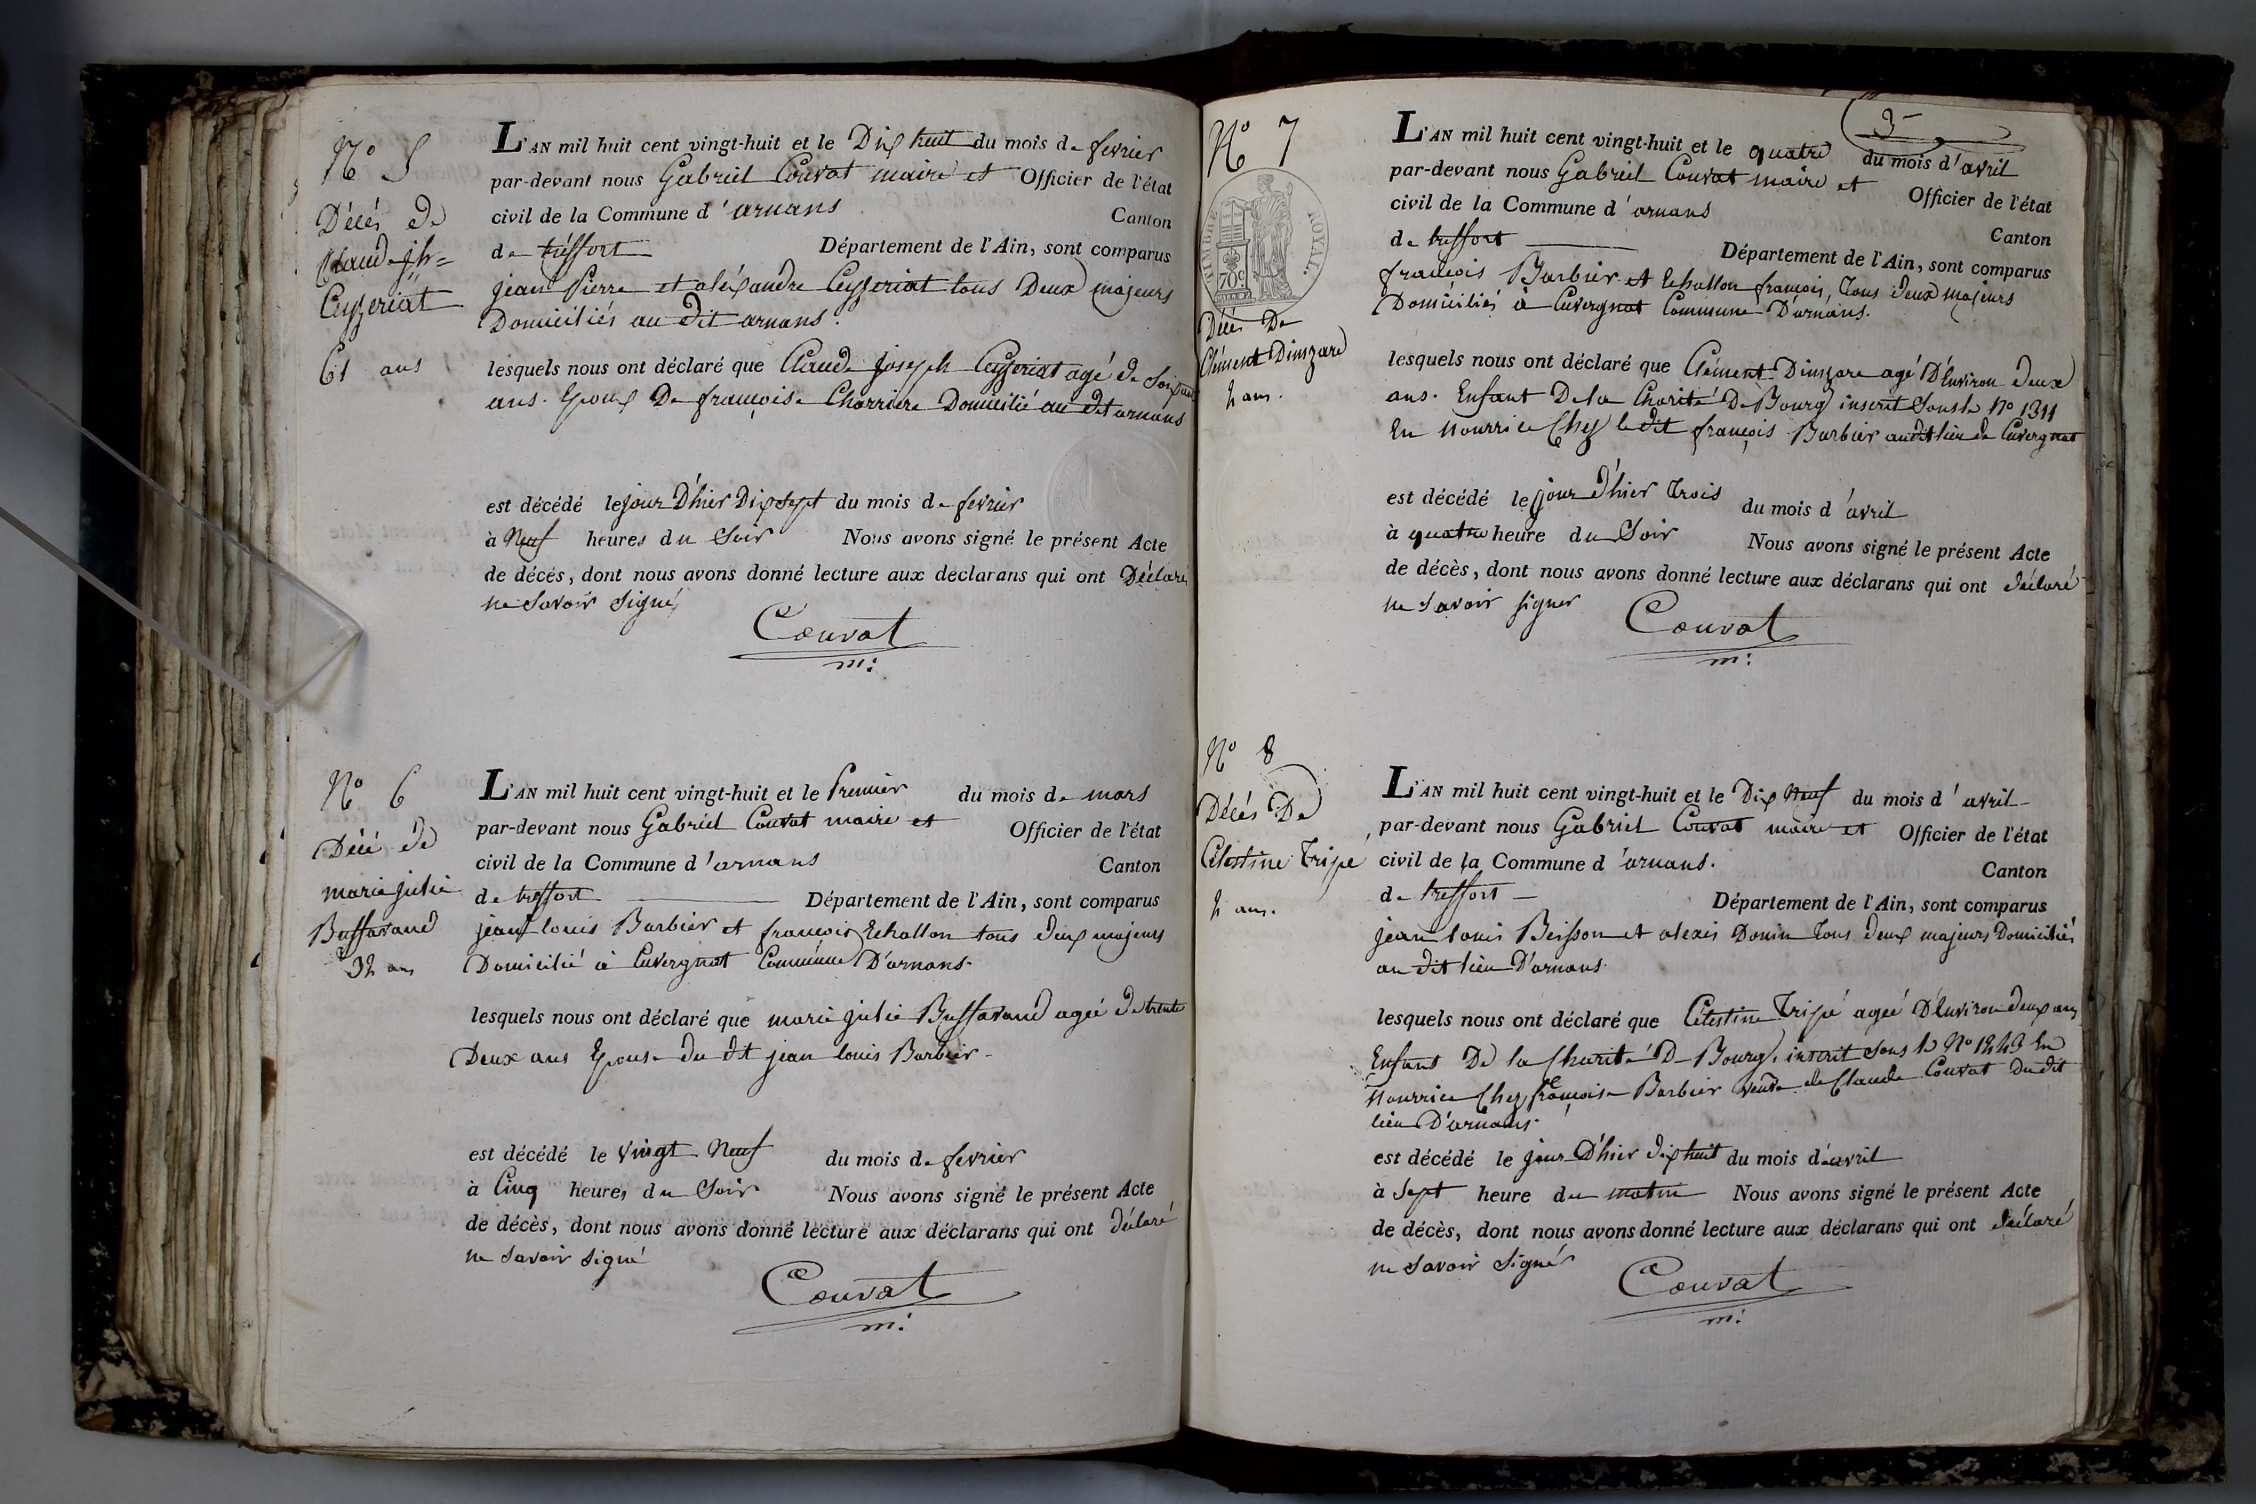 N° 5
Décés de
Claude jh =
Ceyzeriat
61 ans
L'AN mil huit cent vingt-huit et le Dix huit du mois de fevrier
par-devant nous Gabriel Couvat maire et Officier de l'état
civil de la Commune d'arnans Canton
de tréffort Département de l'Ain, sont comparus
jean Pierre et aléxandre Ceyzeriat tous Deux majeurs
Domiciliés au dit arnans.
lesquels nous ont déclaré que Claude joseph Ceyzeriat agé de
ans. Epoux De françoise Charriere Domicilié au dit arnans
est décédé le jour D'hier Dix sept du mois de fevrier
à Neuf heures du Soir Nous avons signé le présent Acte
de décès, dont nous avons donné lecture aux déclarans qui ont Déclaré
ne Savoir Signé
Couvat
m:
N° 6
Décé de
marie julie
Buffavand
32 ans
L'AN mil huit cent vingt-huit et le Premier du mois de mars
par-devant nous Gabriel Couvat maire et Officier de l'état
civil de la Commune d'arnans Canton
de treffort Département de l'Ain, sont comparus
jean louis Barbier et françois Echallon tous deux majeurs
Domicilié à Cuvergnat Commune D'arnans.
lesquels nous ont déclaré que marie julie Buffavand agée de trente
Deux ans Epouse du dt jean louis Barbier
est décédé le Vingt Neuf du mois de fevrier
à Cinq heures du Soir Nous avons signé le présent Acte
de décès, dont nous avons donné lecture aux déclarans qui ont déclaré
ne Savoir Signé
Couvat
m:
3
N° 7
TIMBRE ROYAL
70c
Décés De
Clément Dimzare
2 ans.
L'AN mil huit cent vingt-huit et le quatre du mois d'avril
par-devant nous Gabriel Couvat maire et Officier de l'état
civil de la Commune d'arnans Canton
de treffort Département de l'Ain, sont comparus
françois Barbier et Echallon françois, Tous deux majeurs
Domiciliés à Cuvergnat Commune D'arnans.
lesquels nous ont déclaré que Clément Dimzare agé D'Environ deux
ans. Enfant De la Charité De Bourg inscrit Sous le N°
En Nourrice Chez le dit françois Barbier audit lieu de Cuvergnat
est décédé le jour d'hier Trois du mois d'avril
à quatre heure du Soir Nous avons signé le présent Acte
de décès, dont nous avons donné lecture aux déclarans qui ont déclaré
ne Savoir Signer
Couvat
m:
N° 8
Décés De
Célestine Tripé
2 ans.
L'AN mil huit cent vingt-huit et le Dix Neuf du mois d'avril
par-devant nous Gabriel Couvat maire et Officier de l'état
civil de la Commune d'arnans. Canton
de treffort Département de l'Ain, sont comparus
jean louis Beisson et alexis Donin Tous deux majeurs Domiciliés
au dit lieu D'arnans.
lesquels nous ont déclaré que Célestine Tripé agée D'Environ deux ans
Enfant De la Charité De Bourg, inscrit Sous le N° 1243 En
Nourrice Chez françoise Barbier veuve de Claude Couvat Du dit
lieu D'arnans.
est décédé le jour D'hier dix huit du mois d'avril
à Sept heure du matin Nous avons signé le présent Acte
de décès, dont nous avons donné lecture aux déclarans qui ont déclaré
ne Savoir Signér
Couvat
m: